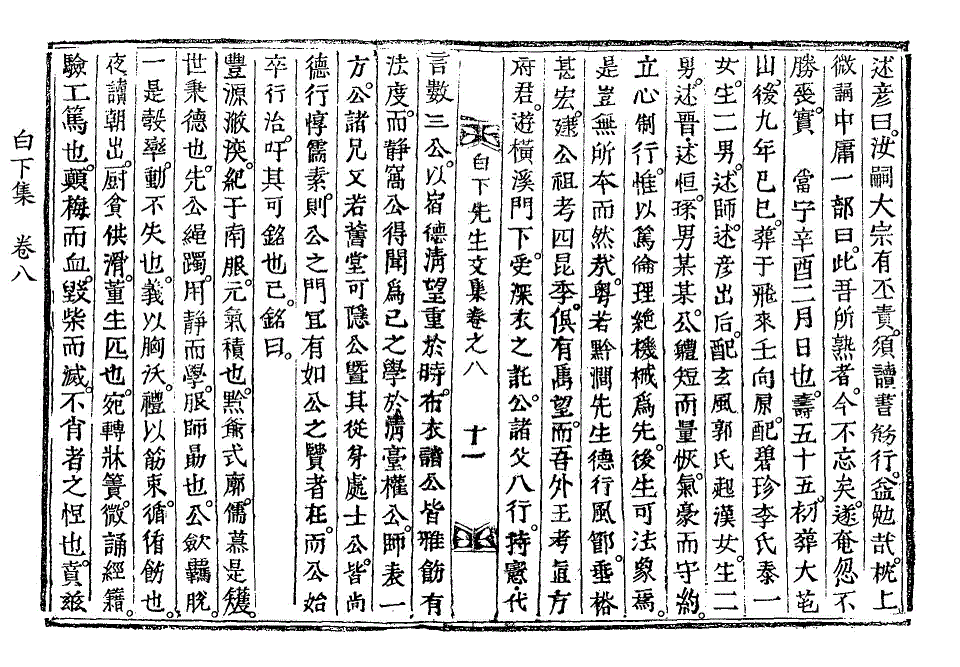 述彦曰。汝嗣大宗有丕責。須讀書飭行。益勉哉。枕上
微誦中庸一部曰。此吾所熟者。今不忘矣。遂奄忽不
勝喪。實 當宁辛酉二月日也。壽五十五。初葬大芚
山。後九年己巳。葬于飛來壬向原。配碧珍李氏泰一
女。生二男。述師。述彦出后。配玄風郭氏起漢女。生二
男。述晋。述恒。孫男某某。公軆短而量恢。氣豪而守約。
立心制行。惟以篤倫理絶機械爲先。後生可法象焉。
是豈無所本而然㢤。粤若黔澗先生德行風節。垂裕
甚宏。建公祖考四昆季。俱有禹望。而吾外王考直方
府君。遊橫溪門下。受深衣之託。公諸父八行。持憲代
白下先生文集卷之八 十一
言數三公。以宿德淸望重於時。布衣諸公皆雅飭有
法度。而靜窩公得聞爲己之學於淸臺權公。師表一
方。公諸兄又若舊堂可隱公曁其從弟處士公。皆尙
德行惇儒素。則公之門冝有如公之賢者在。而公始
卒行治。吁其可銘也已。銘曰。
豐源潎泱。紀于南服。元氣積也。黔爺式廓。儒慕是矱。
世秉德也。先公繩躅。用靜而學。服師勗也。公歛驫脫。
一是彀率。動不失也。義以胸沃。禮以筋束。循脩飭也。
夜讀朝出。厨貪供滑。董生匹也。宛轉牀簀。微誦經籍。
驗工篤也。顚梅而血。毁柴而滅。不肖者之怛也。賁玆
白下集 卷八